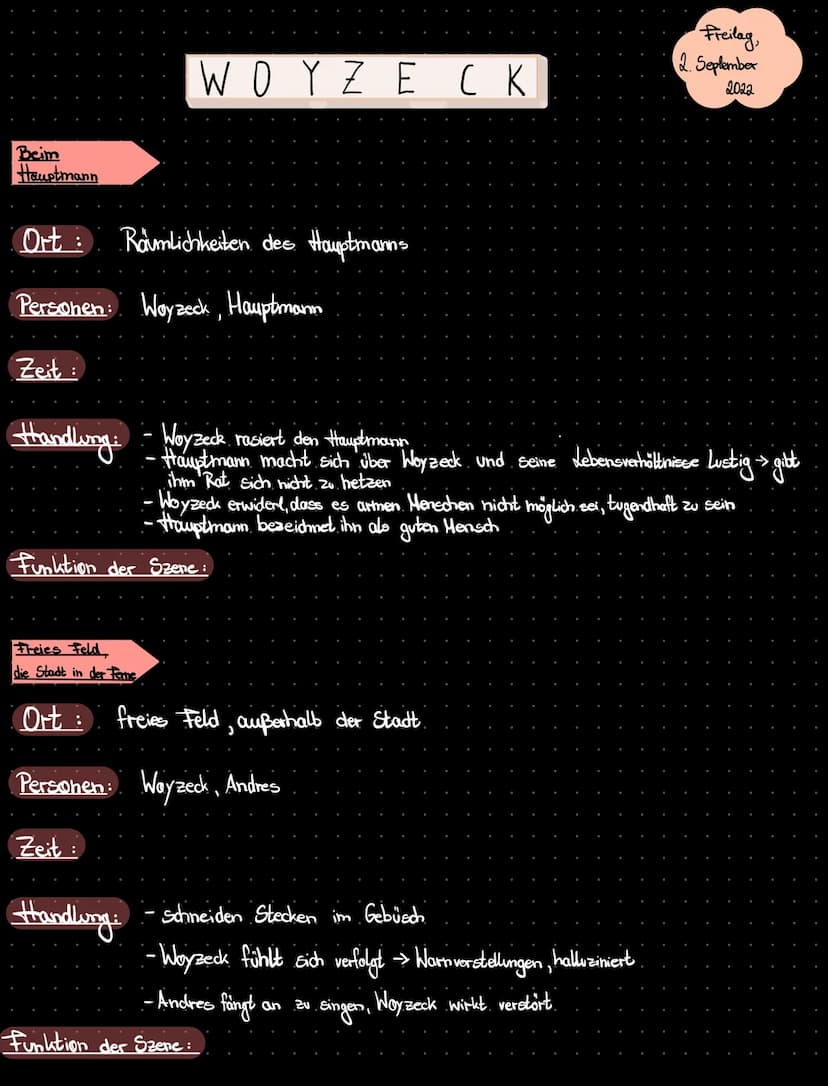 Freitag,
2. September
2022
WOYZECK
Beim
Hauptmann
Ort: Räumlichkeiten des Hauptmanns
Personen: Woyzeck, Hauptmann
Zeit:
Handlung: - Woyzeck rasiert den Hauptmann
- Hauptmann macht sich über Woyzeck und seine Lebensverhältnisse lustig → gibt
ihm Rat sich nicht zu hetzen
- Woyzeck erwidert, dass es armen Menschen nicht möglich sei, tugendhaft zu sein
- Hauptmann bezeichnet ihn als guten Mensch
Funktion der Szene:
Freies Feld,
die Stadt in der Ferne
Ort: freies Feld, außerhalb der Stadt
Personen: Woyzeck, Andres
Zeit:
Handlung: - schneiden Stecken im Gebüsch
- Woyzeck fühlt sich verfolgt → Warnvorstellungen, halluziniert
- Andres fängt an zu singen, Woyzeck wirkt verstört
Funktion der Szene: